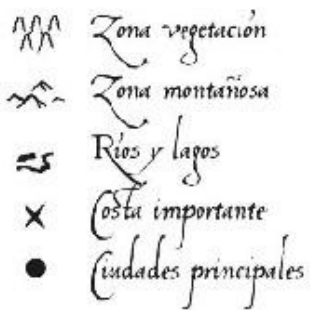 Zona vegetación
Zona montañosa
Ríos y lagos
Costa importante
Ciudades principales